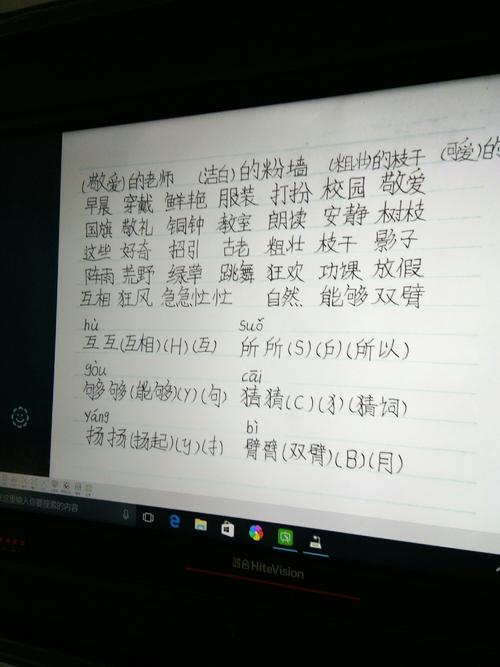 (敬爱)的老师 (洁白)的粉墙 (粗壮)的枝干 (可爱)的
早晨 穿戴 鲜艳 服装 打扮 校园 敬爱
国旗 敬礼 铜钟 教室 朗读 安静 树枝
这些 好奇 招引 古老 粗壮 枝干 影子
阵雨 荒野 绿草 跳舞 狂欢 功课 放假
互相 狂风 急急忙忙 自然 能够 双臂
hù suǒ
互互(互相)(H)(互) 所所(S)(戶)(所以)
gòu cāi
够够(能够)(Y)(句) 猜猜(C)(犭)(猜词)
yáng bì
扬扬(扬起)(y)(扌) 臂臂(双臂)(B)(月)
在这里输入你要搜索的内容
鸿合HiteVision